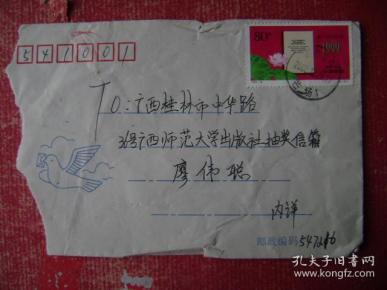 541001
80分
1999
TO:广西桂林市中华路
36号广西师范大学出版社抽奖信箱
廖伟聪
内详
邮政编码
孔夫子旧书网